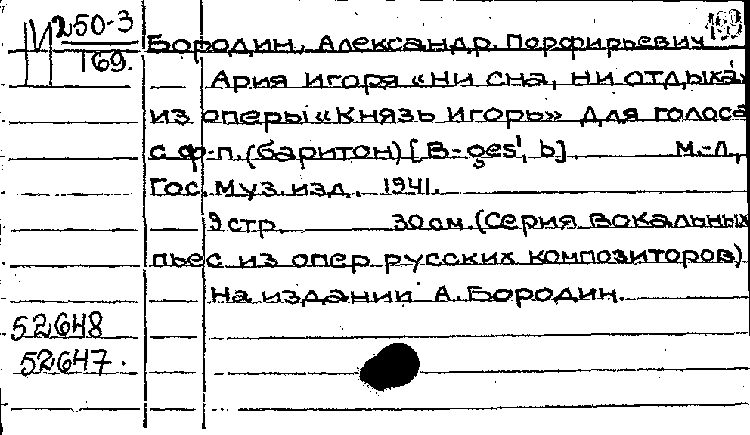 М 250-3
169.
199
Бородин, Александр Порфирьевич
Ария игоря «ни сна, ни отдыха»
из оперы «Князь Игорь» Для голоса
с ф-п. (баритон) [B-ges¹, b]. М.-Л.,
Гос. муз. изд., 1941.
9 стр. 30 см. (Серия вокальных
пьес из опер русских композиторов)
На издании А. Бородин.
52648
52647.